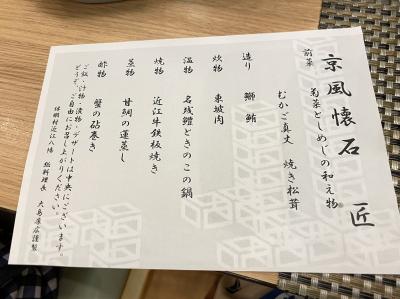 京風懐石 匠
前菜 菊菜としめじの和え物
むかご真丈 焼き松茸
造り 鰤 鮪
炊物 東坡肉
温物 名残鱧ときのこの鍋
焼物 近江牛鉄板焼き
蒸物 甘鯛の蓮蒸し
酢物 蟹の砧巻き
ご飯・汁物・漬物・デザートは中央にございます。
どうぞ、ご自由にお召し上がりください。
休暇村近江八幡 総料理長 大島康広謹製